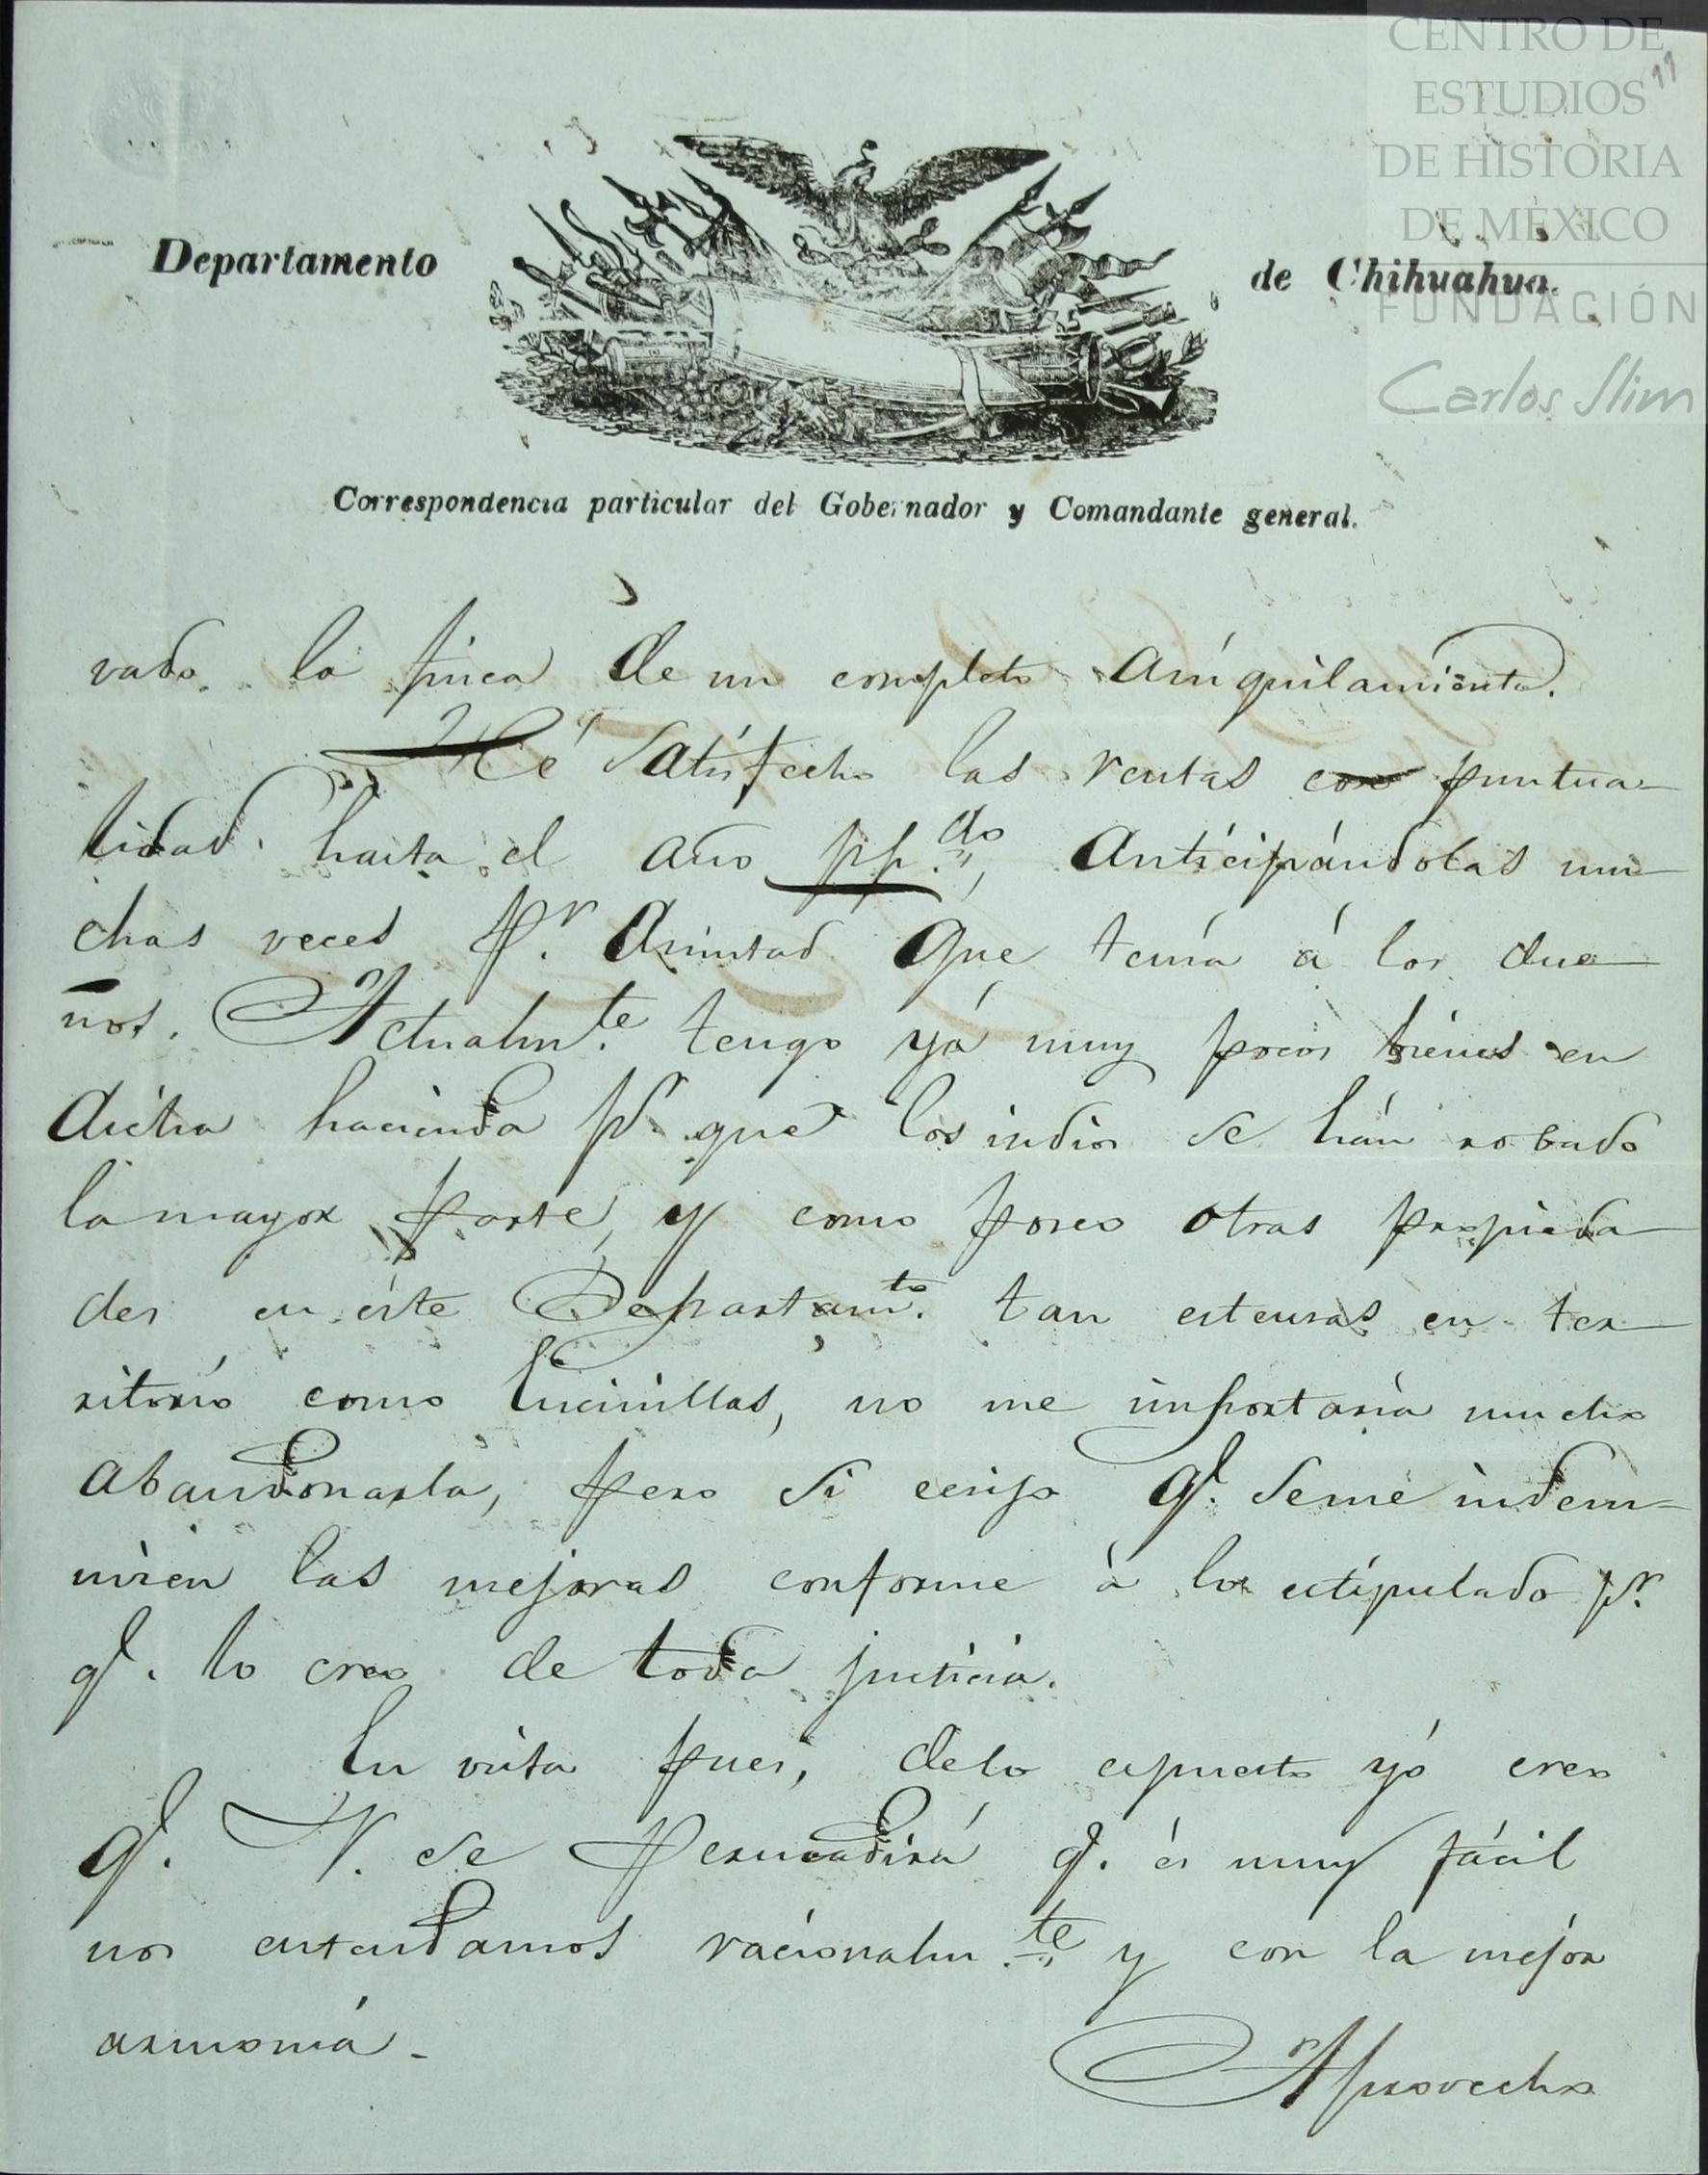 CENTRO DE
ESTUDIOS
DE HISTORIA
DE MÉXICO
FUNDACIÓN
Carlos Slim
11
Departamento de Chihuahua.
Correspondencia particular del Gobernador y Comandante general.
vado la finca de un completo aniquilamiento.
Hé satisfecho las rentas con puntua-
lidad hasta el año pp.do, anticipándolas mu-
chas veces p.r amistad que tenía á los due-
ños. Actualm.te tengo yá muy pocos bienes en
dicha hacienda p.r que los indios se hán robado
la mayor parte, y como poseo otras propieda-
des en éste Departam.to tan estensas en ter-
ritorio como Encinillas, no me importaría mucho
abandonarla, pero si ecsijo q.e se me indem-
nicen las mejoras conforme à lo estipulado p.r
q.e lo creo de toda justicia.
En vista pues, de lo espuesto yó creo
q.e V. se persuadirá q.e és muy fácil
nos entendamos racionalm.te y con la mejor
armonía.
Aprovecho